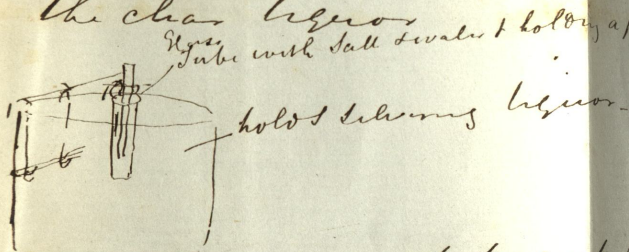 the clear liquor
Glass
Tube with Salt & water & holding a
holds silvering liquor